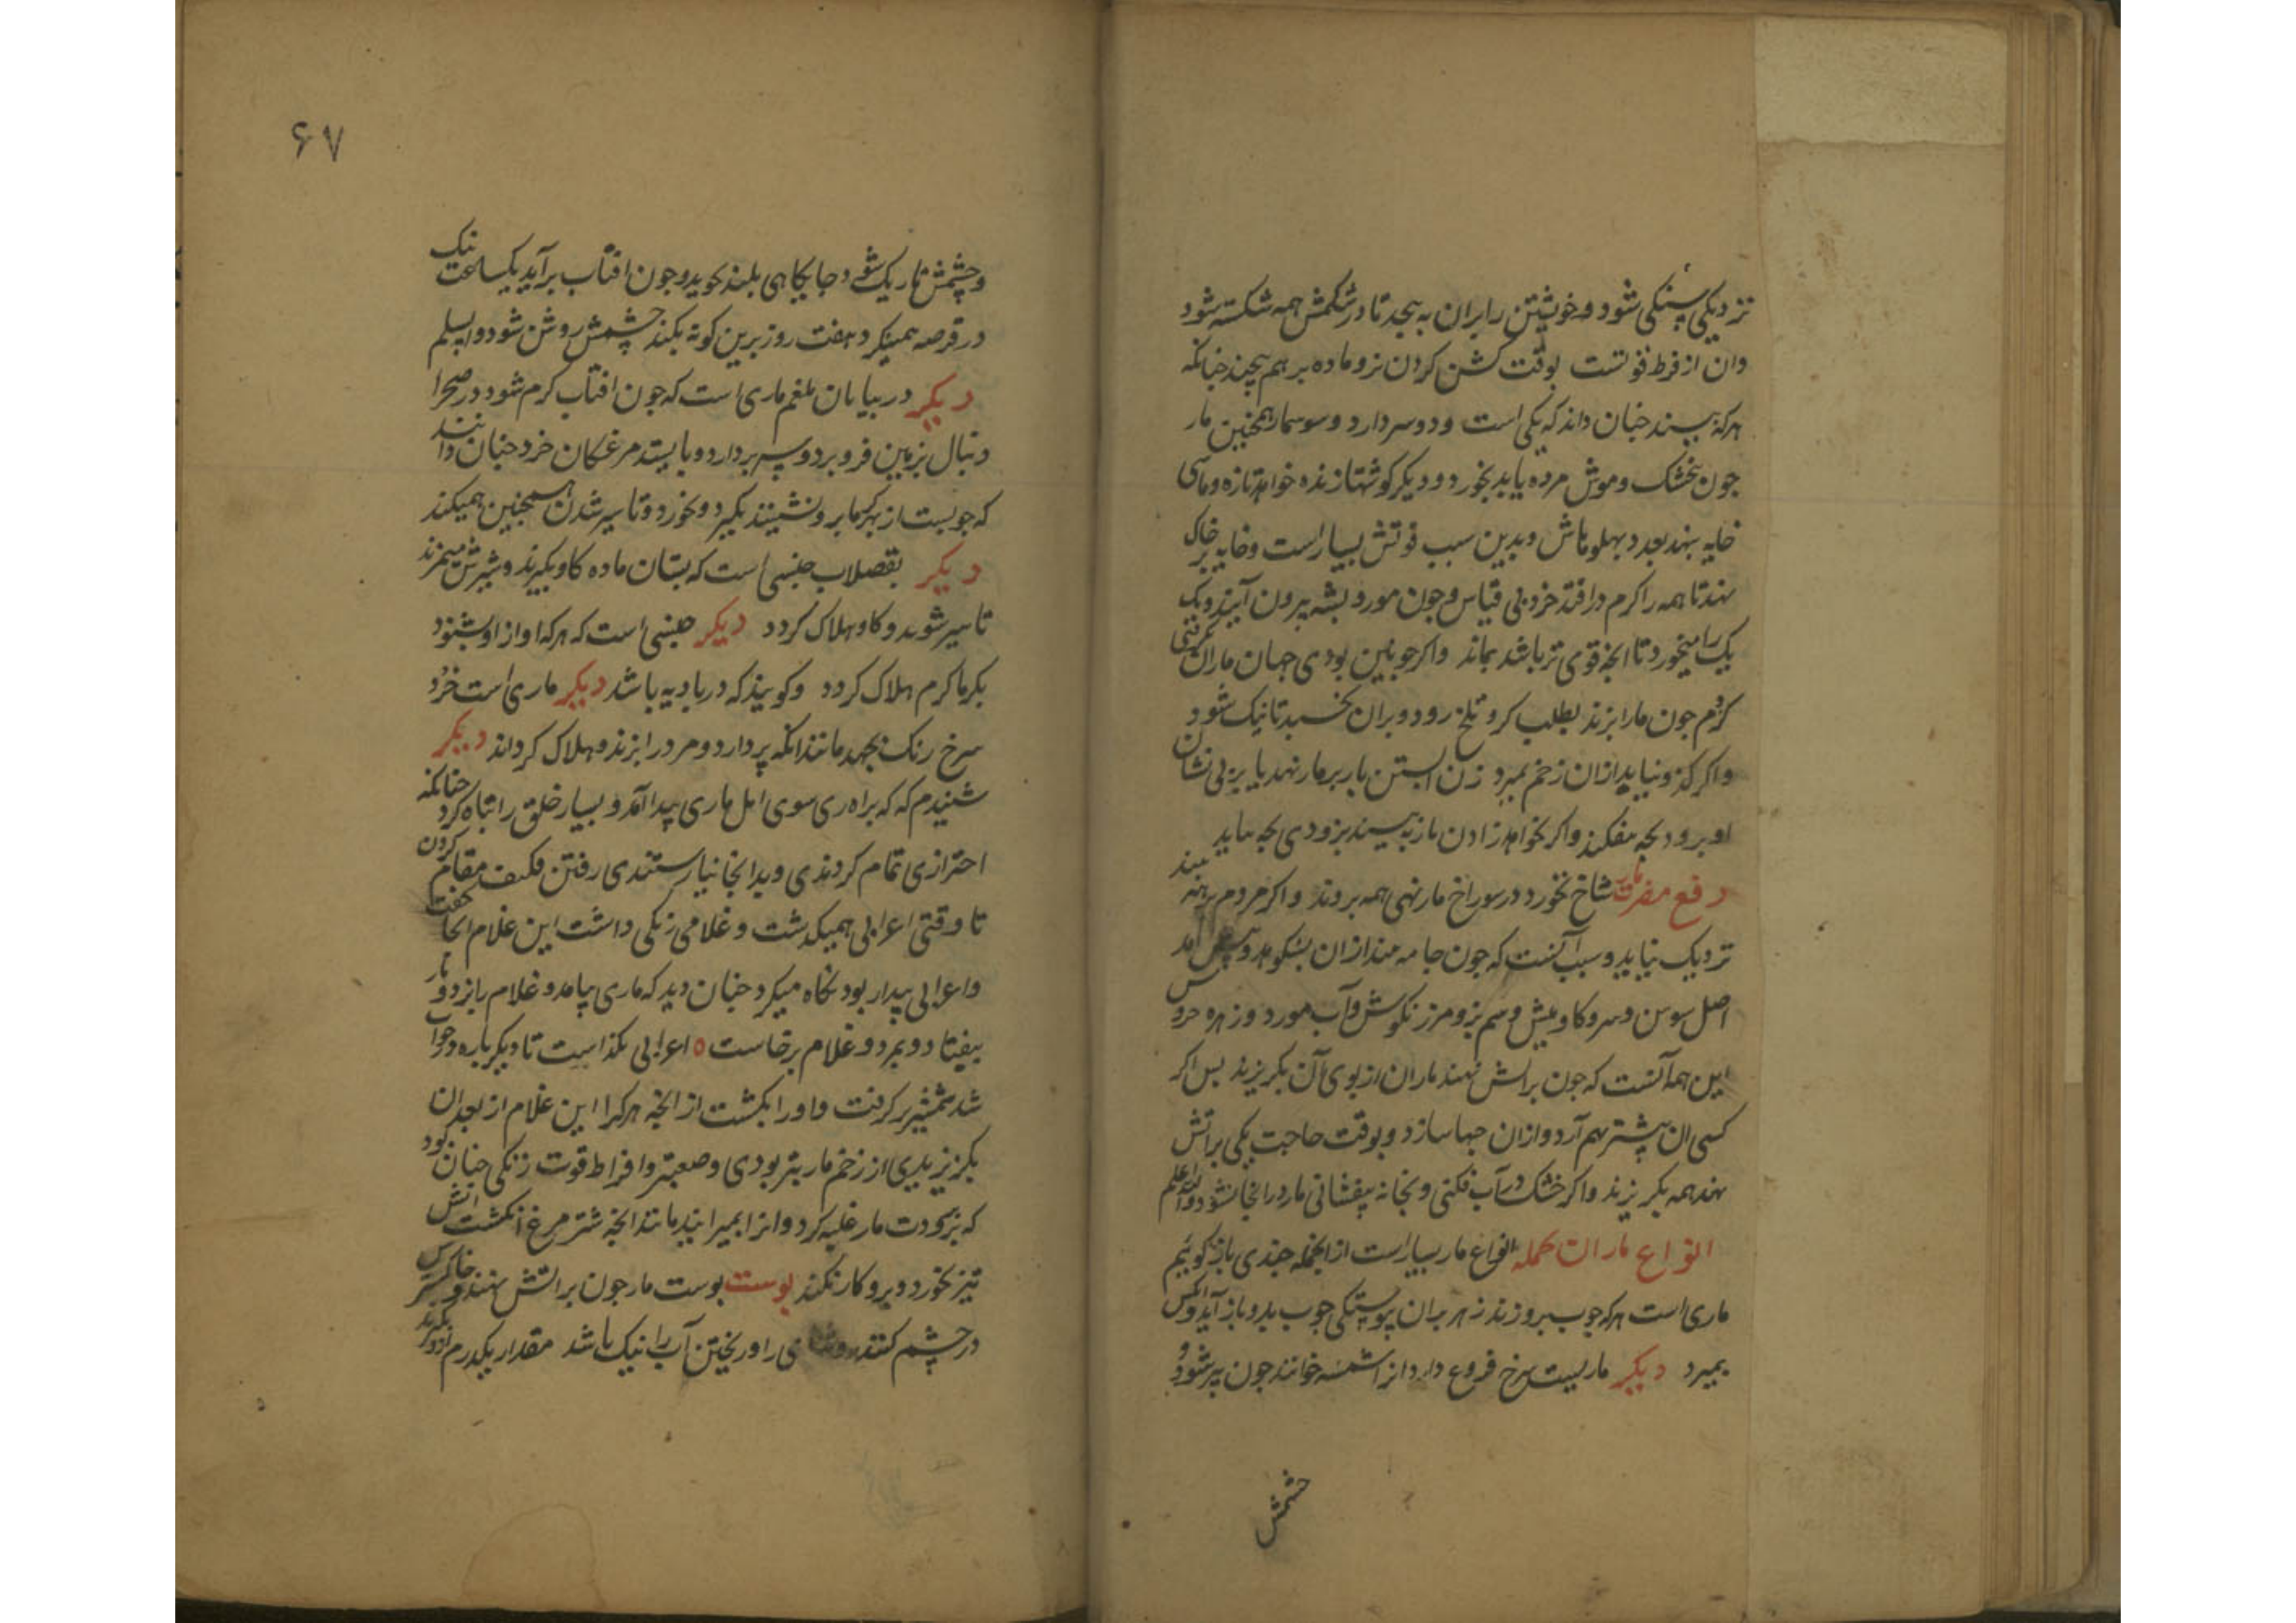 نزدیکی سنکی شود و خویشتن را بران به پیجد تا در شکمش همه شکسته شود
وان از فرط قوتست بوقت کشن کردن نر و ماده بر هم پیچند جنانکه
هرکه بیند جنان داند که یکی است و دو سر دارد و سوسمار همجنین مار
جون بنجشک و موش مرده یابد بخورد و دیکر کوشتها زنده خواهد تازه و ماهی
خایه بنهد بعدد پهلوهاش و بدین سبب قوتش بسیار است و خایه بر خاک
نهد تا همه را کرم درافتد خرد بی قیاس و جون مور و پشه بیرون آیند و یک
یک را میخورد تا انجه قوی تر باشد بماند و اکر جونین بودی جهان ماران
کژدم جون مار ابزند بطلب کرو تلخ رود و بران بخسبد تا نیک شود
و اکر کژدم نیابد ازان زخم بمیرد زن ابستن بار بر مار نهد یا بر پی نشان
او برود بجه بیفکند و اکر بخواهد زادن مار به بیند بزودی بجه بیاید
دفع مضرت مار شاخ نخورد در سوراخ مار نهی همه بروند و اکر مردم برهنه بیند
نزدیک نیاید و سبب آنست که جون جامه بیند ازان بشکوهد و پیش آمد
اصل سوسن و سرو کاو میش و سم بز و مرزنکوش و آب مورد و زهره خرو
این همه آنست که جون بر آتش نهند ماران از بوی آن بکریزند بس اکر
کسی ان بیشتر بهم آرد و ازان حبها سازد و بوقت حاجت یکی بر آتش
نهد همه بکریزند و اکر خشک در آب فکنی و بخانه بیفشانی مار در انجا نشود والله اعلم
انواع ماران جمله انواع مار بسیار است از انجمله جندی باز کوئیم
ماری است هرکه جوب بر و زند زهر بران پیوستکی جوب بدو باز آید و آنکس
بمیرد دیکر ماریست سرخ فروغ دارد انرا خوانند جون پیر شود و
جشمش
۶۷
و چشمش تاریک شود جایکاهی بلند جوید و جون افتاب برآید یکساعت نیک
در قرصه همینکرد هفت روز برین کونه بکند چشمش روشن شود والسلم
دیکر در بیابان بلغم ماری است که جون افتاب کرم شود در صحرا
دنبال بزمین فرو برد و سر بردارد و بایستد مرغکان خرد جنان دانند
که جوبست از بهر کرما برو نشینند بکیرد و بخورد و تا سیر شدن همجنین همیکند
دیکر بقصلاب جنسی است که بستان ماده کاو بکیرند و شیرش میمزند
تا سیر شوند و کاو هلاک کردد دیکر جنسی است که هرکه اواز او شنود
بکرماکرم هلاک کردد و کویند که در بادیه باشد دیکر ماری است خرد
سرخ رنک بجهد مانند انکه پر دارد و مردر ابزند و هلاک کرداند دیکر
شنیدم که که براه ری سوی امل ماری پیدا آمد و بسیار خلق را تباه کرد جنانکه
احترازی تمام کردندی و بدانجا نیارستندی رفتن فکیف مقام کردن
تا وقتی اعرابی همیکذشت و غلامی زنکی داشت این غلام انجا خفت
و اعرابی بیدار بود نکاه میکرد جنان دید که ماری بیامد و غلام را بزد و مار
بیفتاد و بمرد و غلام برخاست ه اعرابی بکذاست تا دیکر باره در خواب
شد شمشیر برکرفت و او را بکشت از انجه هرکرا این غلام از بعد ان
بکزیدی از زخم مار بتر بودی و صعبتر و افراط قوت زنکی جنان بود
که بزودت مار غلبه کرد و انرا بمیرانید مانند انجه شتر مرغ انکشت آتش
تیز بخورد و برو کار نکند بوست بوست مار جون بر آتش نهند و خاکسترش
در چشم کنند روشنائی را و ریختن آب را نیک باشد مقدار یکدرم